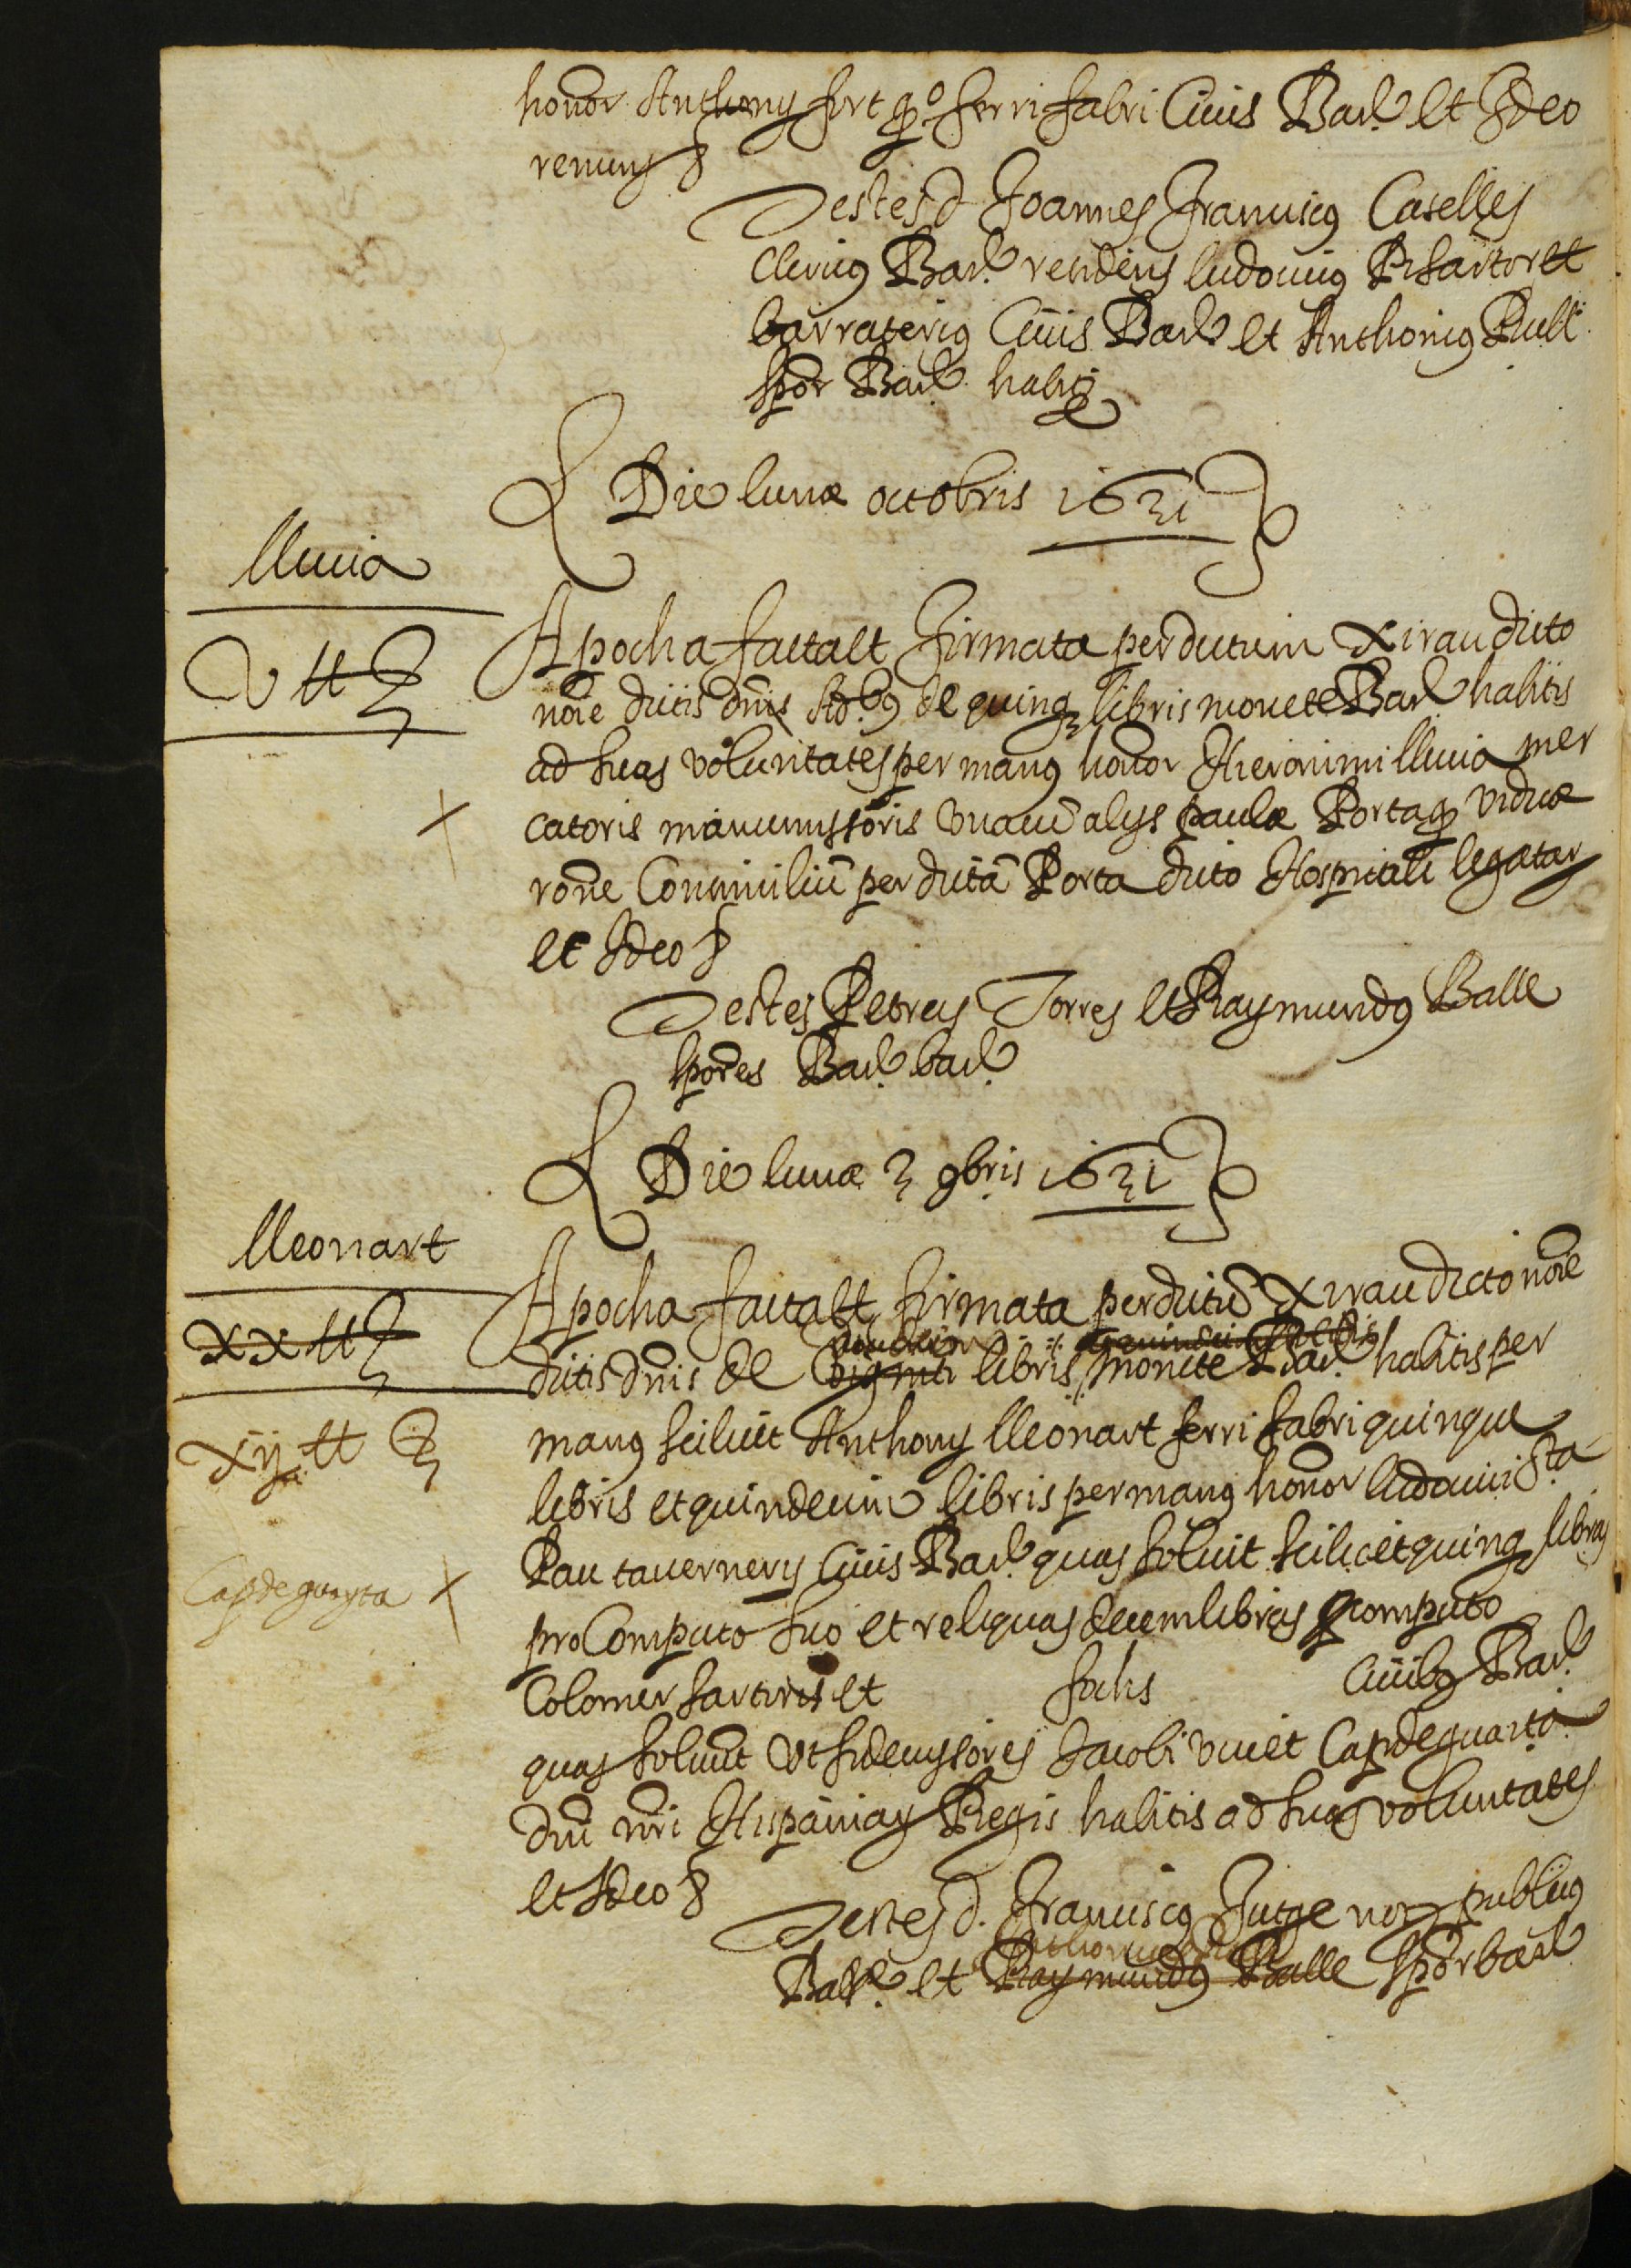 honor Anthony fort qº ferri fabri Civis Bar.ᵉ et Ideo
renuns &
Testes d Joannes Franciscus Caselles
clericus Bar.ᵉ residens ludovicus Pi sartor et
barraterius Civis Barᵉ et Anthonius Rull
spor Barᵉ habit
Die lunæ octobris 1631
lluvia
V ℔
Apocha facta et firmata per dictum Xirau dicto
noīe dictis dnīs de quinq libris monete Barᵉ habitis
ad suas voluntates per manus honor Hieronimi lluvia mer
catoris manumissoris una cū alys paulæ Porta q viduæ
rone Consimiliū per dictā Porta dicto Hospitali legatar
et Ideo &
Testes Petrus Torres et Raymundus Balle
spores Bar.ᵉ barᵉ
Die lunæ 3 9bris 1631
lleonart
xx ℔
xij ℔
Capdeguayta
Apocha facta et firmata per dictū Xirau dicto noīe
dictis dnīs de viginti libris monete Bar.ᵉ habitis per
manus scilicet Anthony lleonart ferri fabri quinque
libris et quindecim libris per manus honor ludovici
Pau tavernery Civis Barᵉ quas solvit scilicet quinq libras
pro Computo suo et reliquas decem libras p computo
Colomer sartoris et sochs Civibus Barᵉ
quas solvunt ut fideiussores Jacobi vivet Capdeguaita
dni nri Hispaniay Regis habitis ad suas voluntates
et Ideo &
Testes d. Franciscus Jutge not publicus
Barᵉ et Raymundus Balle spor barᵉ